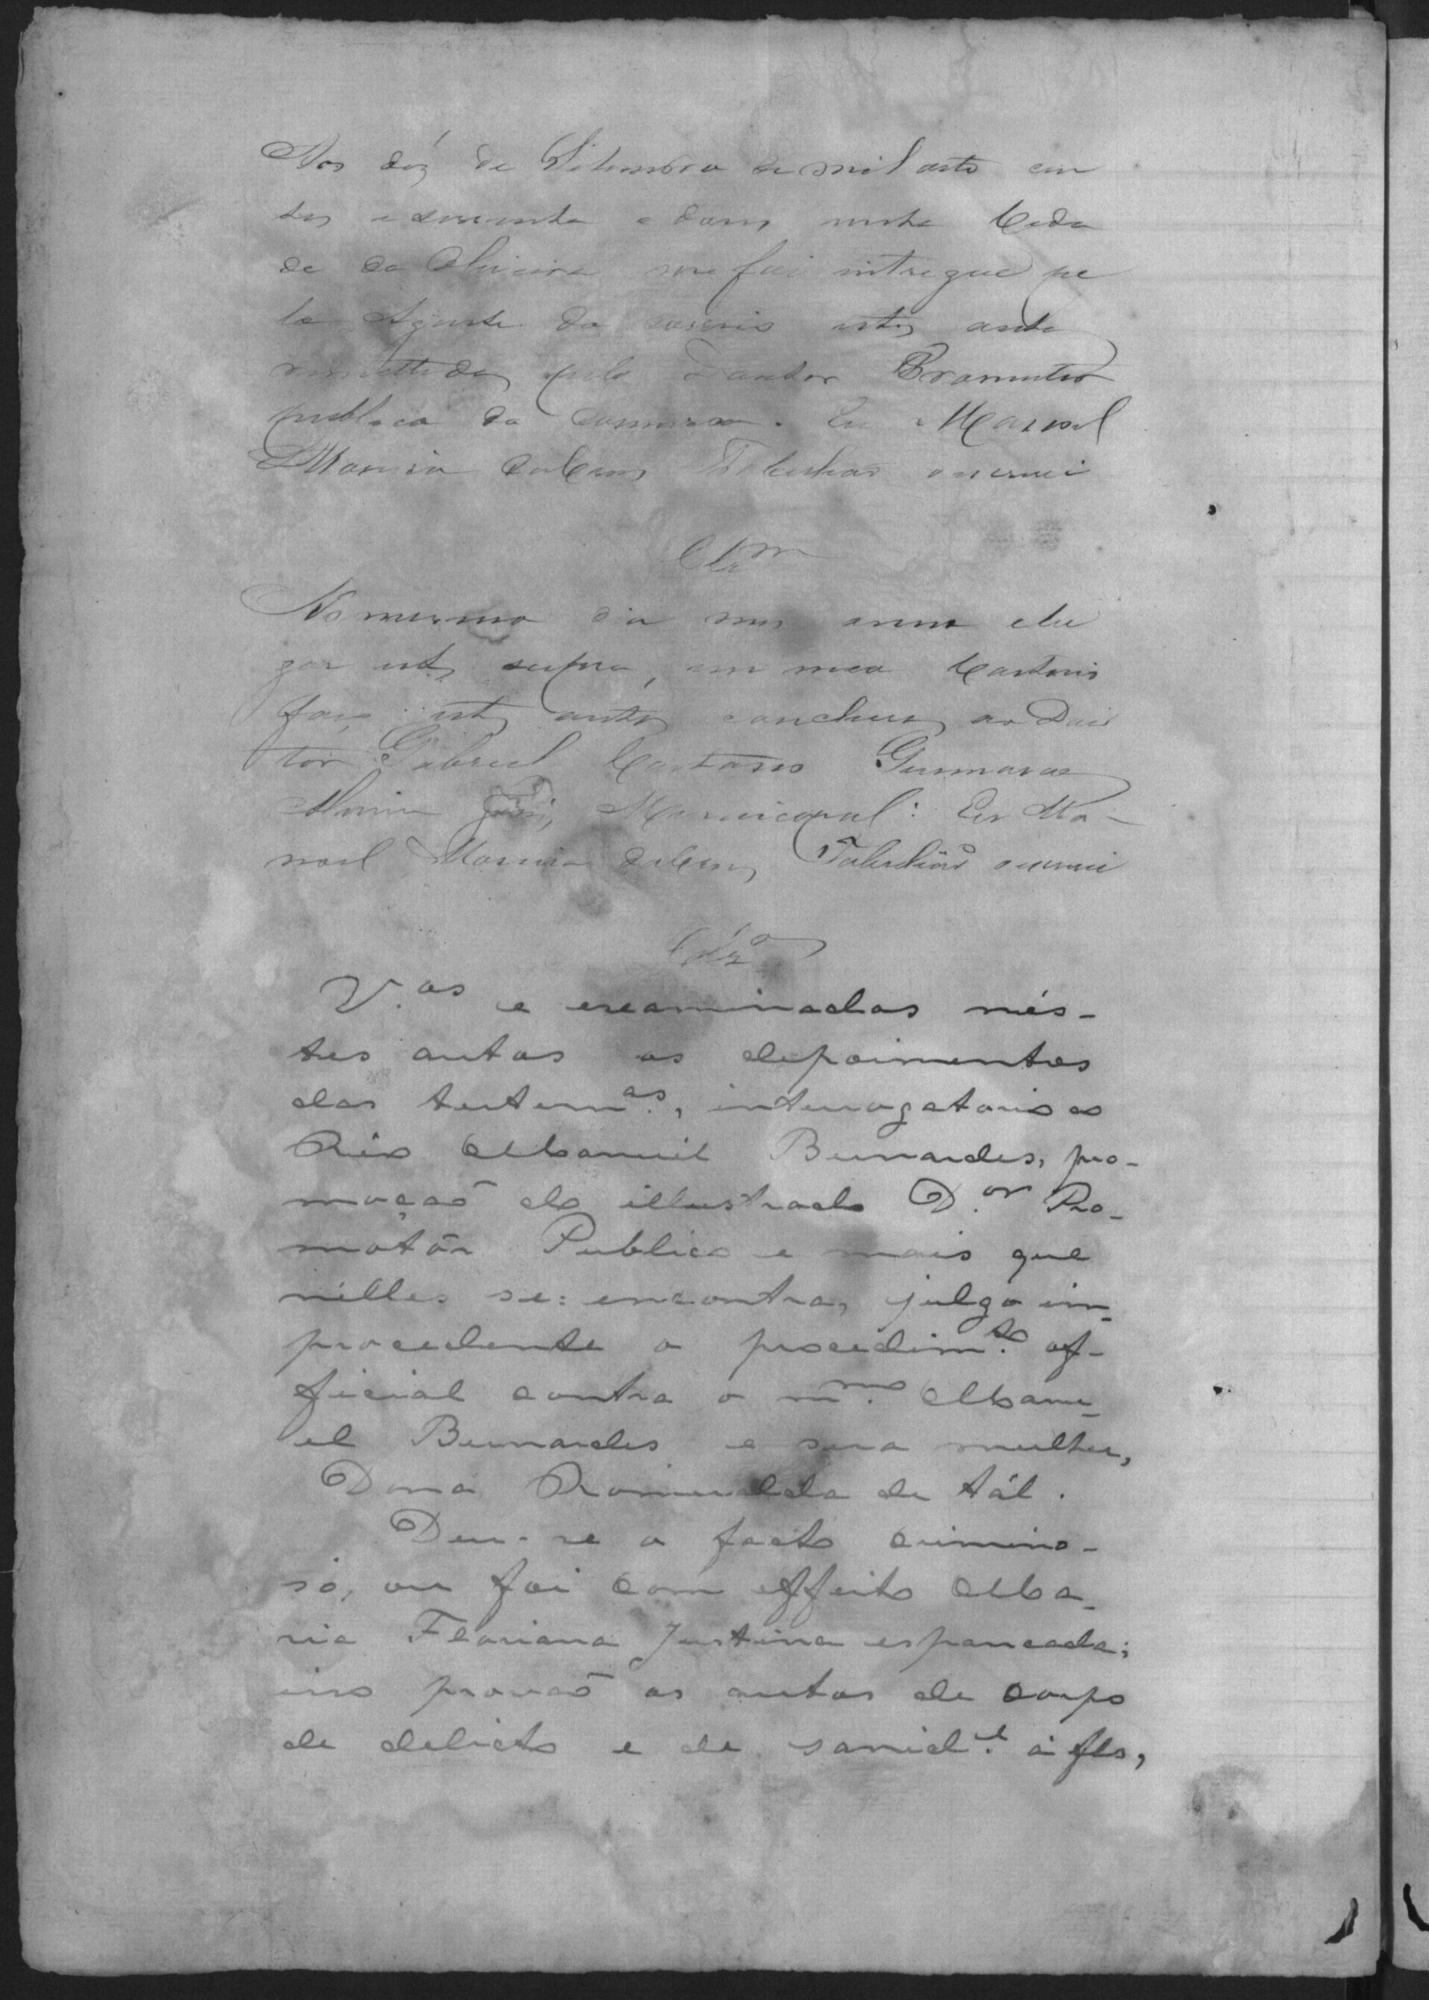 Aos déz de Setembro de mil oito cen
tos e sessenta e dous nesta Cida
de da Oliveira me foi intregue pe
lo Agente do correio estes autos
remettidos pelo Doutor Promutor
publico da Comarca. Eu Manoel
Tabeliao escrevi
Clzm
No mesmo dia mes anno elu
gar ut supra, em meu Cartorio
faço estes autos concluzos ao Dou
tor Gabriel Caetano Guimaraes
Juiz Municipal: Eu Ma-
noel Tabelião escrevi
Clzo
V.as e examinados nés-
tes autos os depoimentos
das testem.as, interrogatorio ao
Réo Manuél Bernardes, pro-
moçaõ do illustrado D.or Pro-
motôr Publico e mais que
nélles se: encontra, julgo im-
procedente o procedim.to of-
ficial contra o m.mo Manu-
el Bernardes e sua mulher,
Dona Romualda de tál.
Deu-se o facto crimino-
so, ou foi com effeito Ma-
ria Floriana Justina espancada;
isso provaõ os autos de corpo
de delicto e de sanid.e á fls,